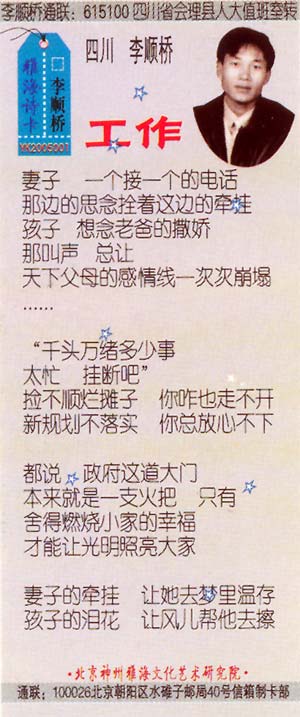 李顺桥通联：615100 四川省会理县人大值班室转
雅海诗卡
李顺桥
YK2005001
四川 李顺桥
工作
妻子 一个接一个的电话
那边的思念拴着这边的牵挂
孩子 想念老爸的撒娇
那叫声 总让
天下父母的感情线一次次崩塌
……
“千头万绪多少事
太忙 挂断吧”
捡不顺烂摊子 你咋也走不开
新规划不落实 你总放心不下
都说 政府这道大门
本来就是一支火把 只有
舍得燃烧小家的幸福
才能让光明照亮大家
妻子的牵挂 让她去梦里温存
孩子的泪花 让风儿帮他去擦
·北京神州雅海文化艺术研究院·
通联：100026北京朝阳区水碓子邮局40号信箱制卡部